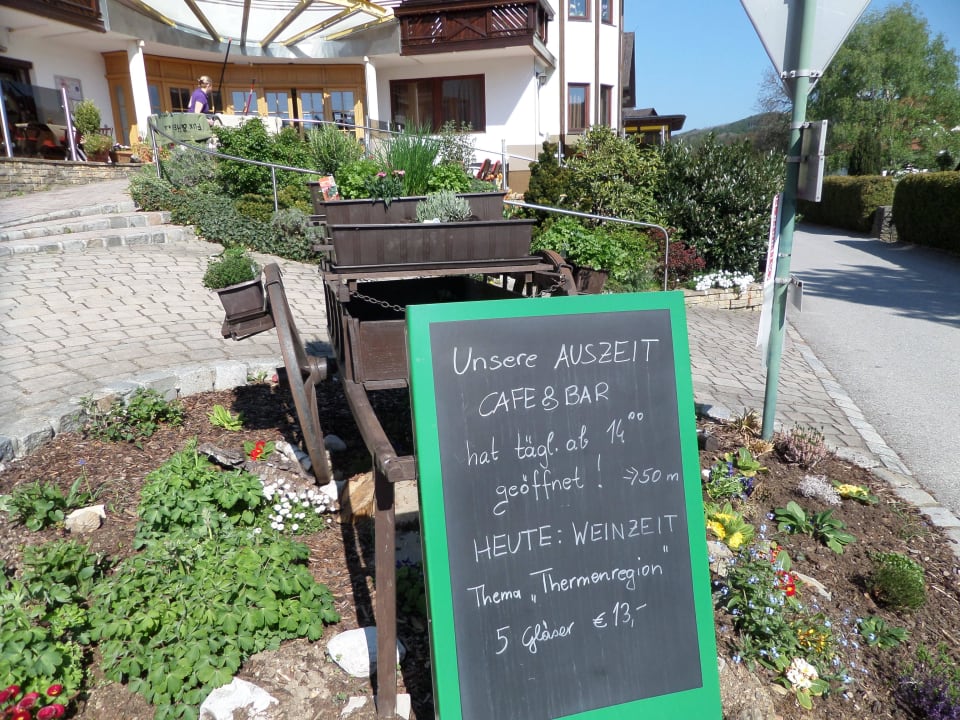 Unsere AUSZEIT
CAFE & BAR
hat tägl. ab 14⁰⁰
geöffnet! → 50 m
HEUTE: WEINZEIT
Thema „Thermenregion"
5 Gläser € 13,-